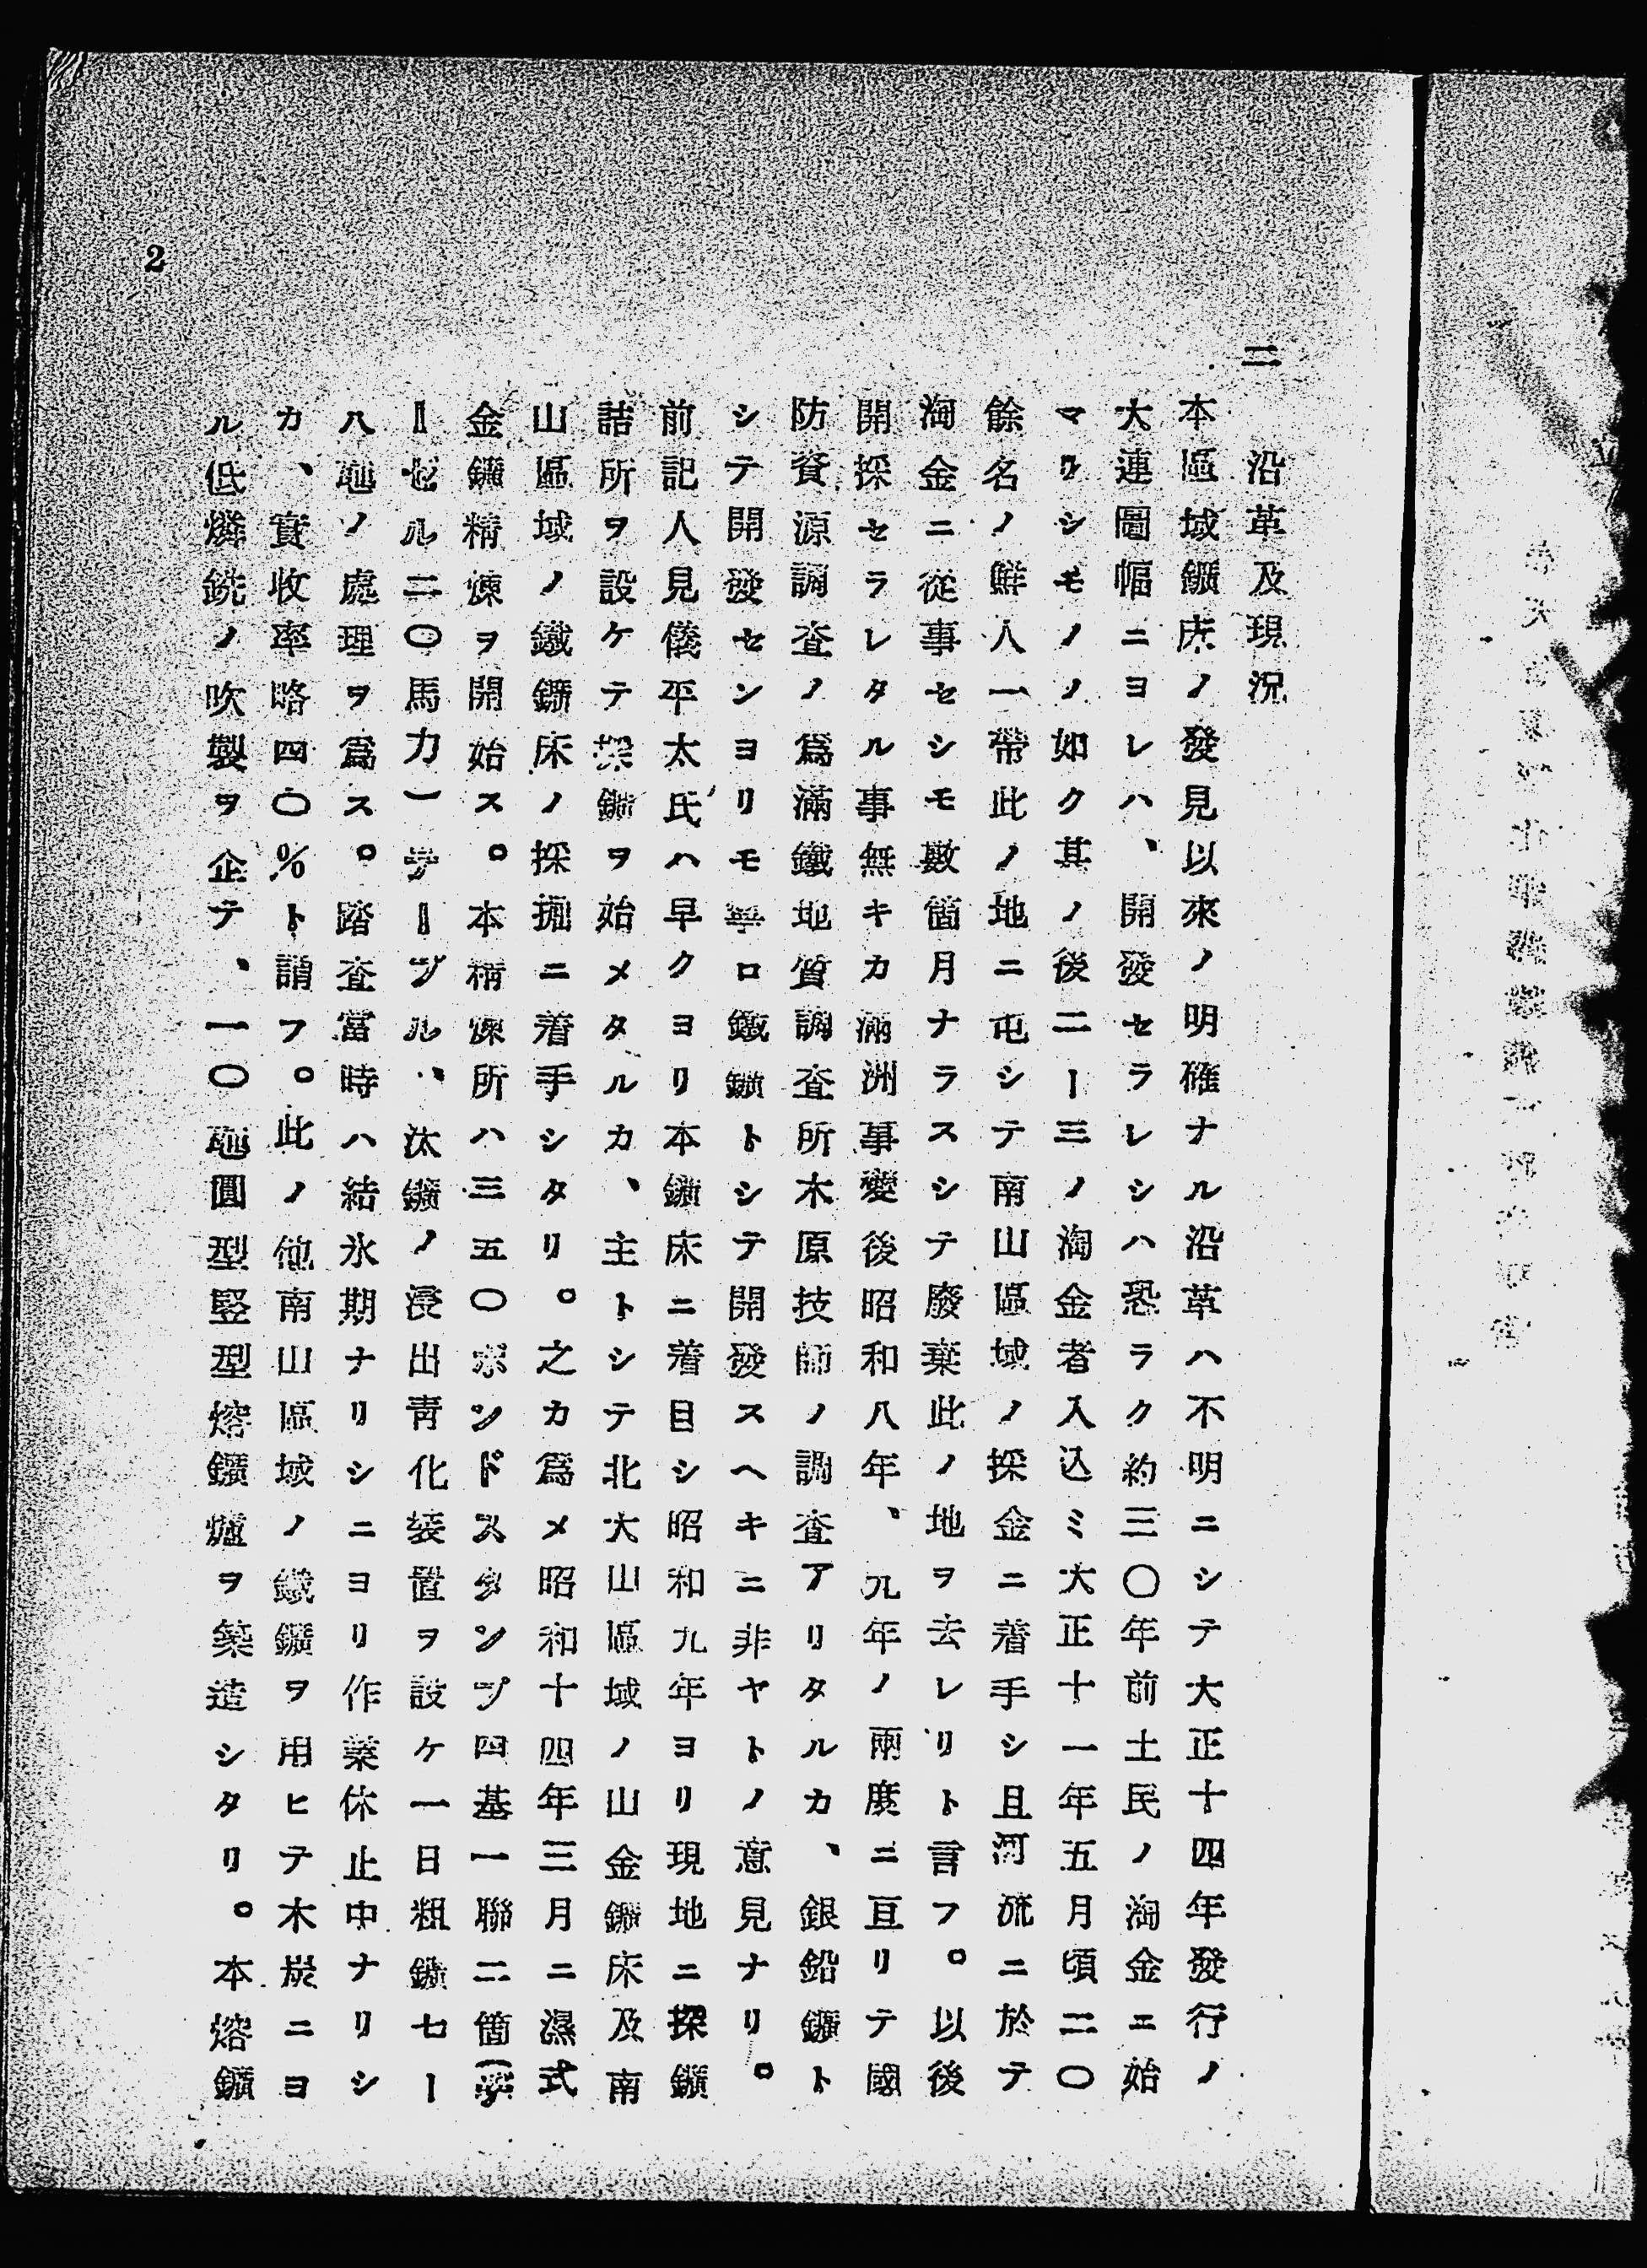 二
沿革及現況
本區域鑛床ノ發見以來ノ明確ナル沿革ハ不明ニシテ大正十四年發行ノ
大連圖幅ニヨレハ、開發セラレシハ恐ラク約三〇年前土民ノ淘金ニ始
マリシモノノ如ク其ノ後二ー三ノ淘金者入込ミ大正十一年五月頃二〇
餘名ノ鮮人一帶此ノ地ニ屯シテ南山區域ノ採金ニ着手シ且河流ニ於テ
淘金ニ從事セシモ數箇月ナラスシテ廢棄此ノ地ヲ去レリト言フ。以後
開採セラレタル事無キカ滿洲事變後昭和八年、九年ノ兩度ニ亘リテ國
防資源調査ノ爲滿鐵地質調査所木原技師ノ調査アリタルカ、銀鉛鑛ト
シテ開發センヨリモ寧ロ鐵鑛トシテ開發スヘキニ非ヤトノ意見ナリ。
前記人見儀平太氏ハ早クヨリ本鑛床ニ着目シ昭和九年ヨリ現地ニ探鑛
詰所ヲ設ケテ探鑛ヲ始メタルカ、主トシテ北大山區域ノ山金鑛床及南
山區域ノ鐵鑛床ノ採掘ニ着手シタリ。之カ爲メ昭和十四年三月ニ濕式
金鑛精煉ヲ開始ス。本精煉所ハ三五〇ポンドスタンプ四基一聯二箇(
ーゼル二〇馬力一、テーブル、汰鑛ノ浸出靑化裝置ヲ設ケ一日粗鑛七ー
八瓲ノ處理ヲ爲ス。踏査當時ハ結氷期ナリシニヨリ作業休止中ナリシ
カ、實收率略四〇%ト謂フ。此ノ他南山區域ノ鐵鑛ヲ用ヒテ木炭ニヨ
ル低燐銑ノ吹製ヲ企テ、一〇瓲圓型竪型熔鑛爐ヲ築造シタリ。本熔鑛
2